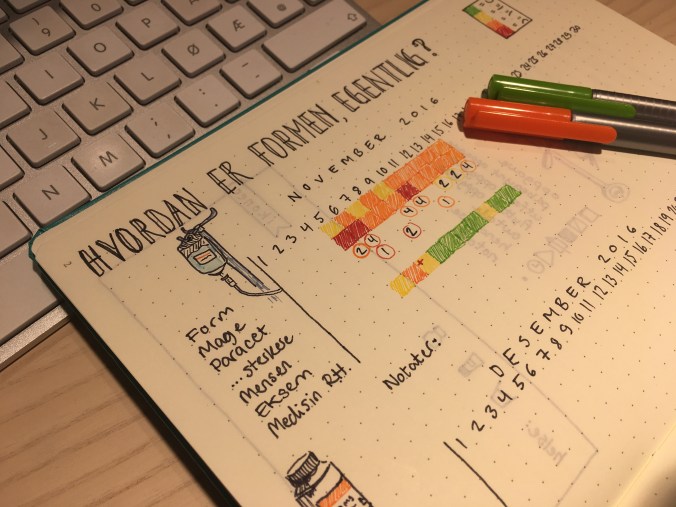 HVORDAN ER FORMEN, EGENTLIG?
NOVEMBER 2016
1 2 3 4 5 6 7 8 9 10 11 12 13 14 15 16
Form
Mage
Paracet
...sterkere
Mensen
Eksem
Medisin R.H.
2 4 1 4 4 2 2 1 2 4
Notater:
DESEMBER 2016
1 2 3 4 5 6 7 8 9 10 11 12 13 14 15 16 17 18 19
9 O
I O P Å
J K L Ø Æ
N M